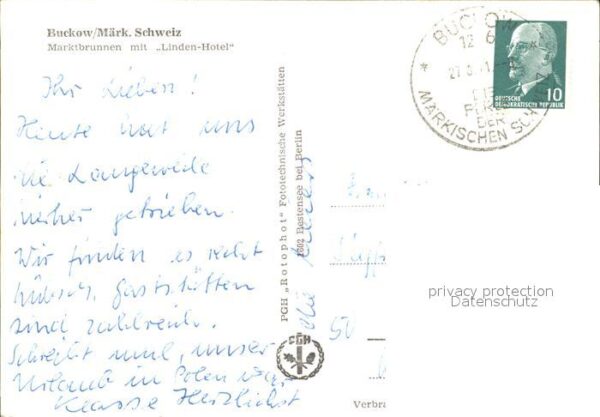 Buckow/Märk. Schweiz
Marktbrunnen mit „Linden-Hotel"
Ihr Lieben!
Heute hat uns
die Langeweile
hierher getrieben.
Wir finden es recht
hübsch, Gaststätten
sind zahlreich.
Schreibt mal, unser
Urlaub in Polen war
Klasse Herzlichst
PGH „Rotophot" Fototechnische Werkstätten
1602 Bestensee bei Berlin
PGH
BUCKOW
MÄRKISCHEN
DER
10
DEUTSCHE
DEMOKRATISCHE REPUBLIK
50
privacy protection
Datenschutz
Verbra